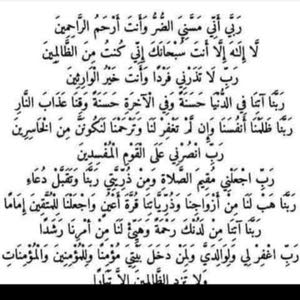 رَبِّي أَنِّي مَسَّنِيَ الضُّرُّ وَأَنتَ أَرْحَمُ الرَّاحِمِينَ
لَّا إِلَـٰهَ إِلَّا أَنتَ سُبْحَانَكَ إِنِّي كُنتُ مِنَ الظَّالِمِينَ
رَبِّ لَا تَذَرْنِي فَرْدًا وَأَنتَ خَيْرُ الْوَارِثِينَ
رَبَّنَا آتِنَا فِي الدُّنْيَا حَسَنَةً وَفِي الْآخِرَةِ حَسَنَةً وَقِنَا عَذَابَ النَّارِ
رَبَّنَا ظَلَمْنَا أَنفُسَنَا وَإِن لَّمْ تَغْفِرْ لَنَا وَتَرْحَمْنَا لَنَكُونَنَّ مِنَ الْخَاسِرِينَ
رَبِّ انصُرْنِي عَلَى الْقَوْمِ الْمُفْسِدِينَ
رَبِّ اجْعَلْنِي مُقِيمَ الصَّلَاةِ وَمِن ذُرِّيَّتِي رَبَّنَا وَتَقَبَّلْ دُعَاءِ
رَبَّنَا هَبْ لَنَا مِنْ أَزْوَاجِنَا وَذُرِّيَّاتِنَا قُرَّةَ أَعْيُنٍ وَاجْعَلْنَا لِلْمُتَّقِينَ إِمَامًا
رَبَّنَا آتِنَا مِن لَّدُنكَ رَحْمَةً وَهَيِّئْ لَنَا مِنْ أَمْرِنَا رَشَدًا
رَبِّ اغْفِرْ لِي وَلِوَالِدَيَّ وَلِمَن دَخَلَ بَيْتِيَ مُؤْمِنًا وَلِلْمُؤْمِنِينَ وَالْمُؤْمِنَاتِ
وَلَا تَزِدِ الظَّالِمِينَ إِلَّا تَبَارًا